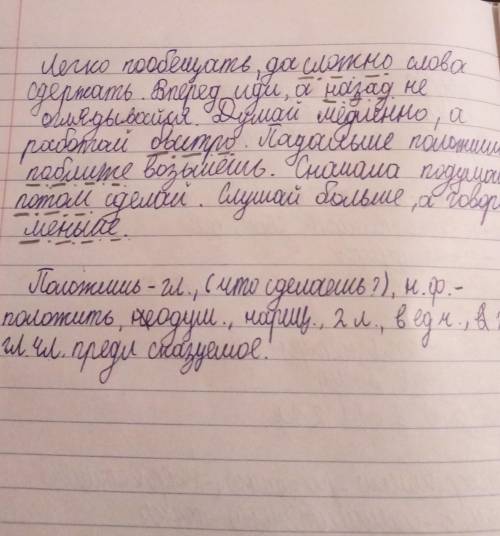 Легко пообещать, да сложно слова
сдержать. Вперед иди, а назад не
оглядывайся. Думай медленно, а
работай быстро. Падальше положишь
поближе возьмёшь. Сначала подумай
потом сделай. Слушай больше, а говор
меньше.
Положишь - гл., (что сделаешь?), н.ф. -
положить, неодуш., нариц., 2 л., в ед ч., в
гл. чл. предл сказуемое.